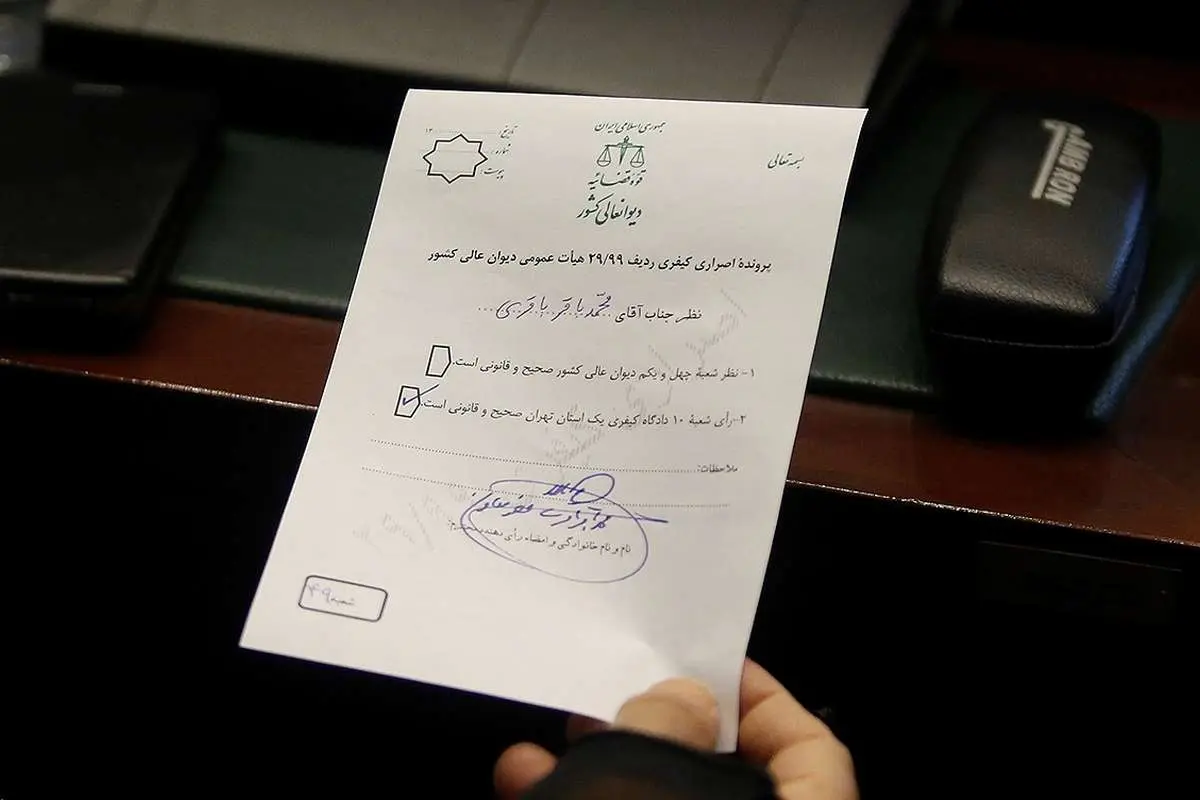 بسمه تعالی
جمهوری اسلامی ایران
قوه قضائیه
دیوانعالی کشور
تاریخ: ۱۳
شماره:
پیوست:
پروندهٔ اصراری کیفری ردیف ۲۹/۹۹ هیأت عمومی دیوان عالی کشور
نظر جناب آقای محمّد باقر باقری
۱- نظر شعبهٔ چهل و یکم دیوان عالی کشور صحیح و قانونی است.
۲- رأی شعبهٔ ۱۰ دادگاه کیفری یک استان تهران صحیح و قانونی است.
ملاحظات:
نام و نام خانوادگی و امضاء رأی دهنده محترم:
شعبه ۴۹